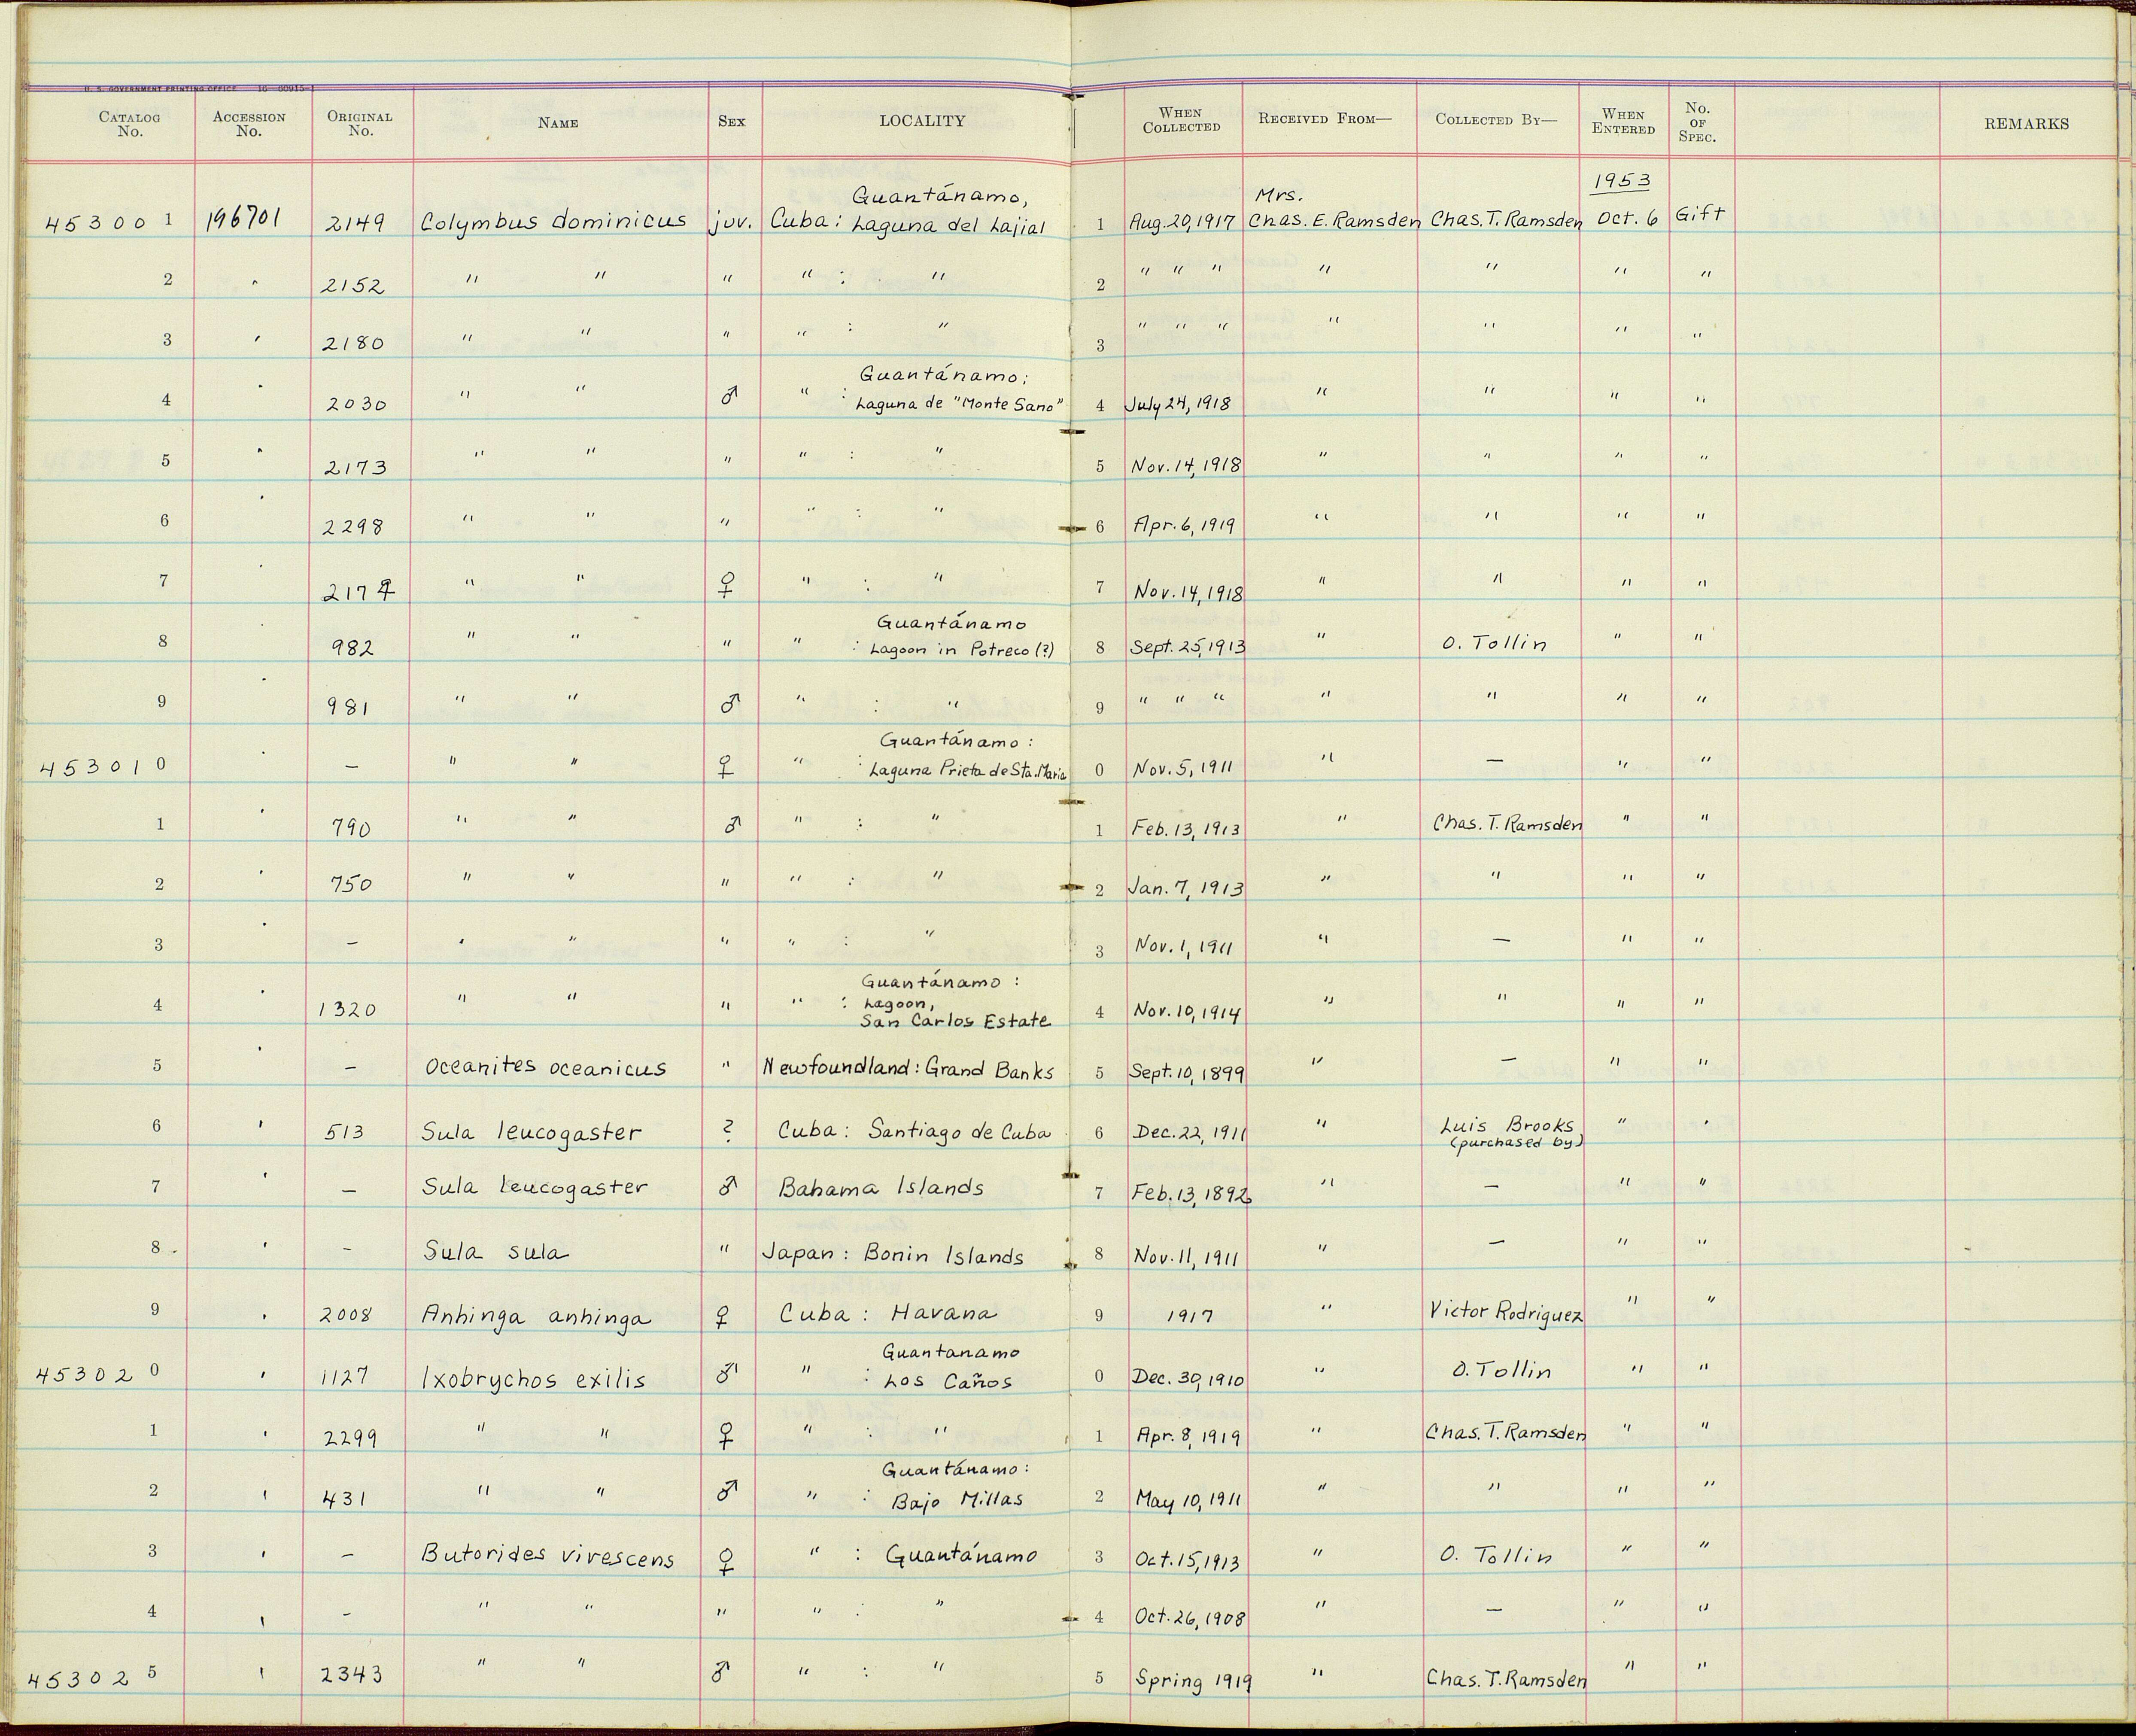 U. S. GOVERNMENT PRINTING OFFICE 16—60915-1
CATALOG No. ACCESSION No. ORIGINAL No. NAME SEX LOCALITY WHEN COLLECTED RECEIVED FROM— COLLECTED BY— WHEN ENTERED No. OF SPEC. REMARKS
Guantánamo, Mrs. 1953
45300 1 196701 2149 Colymbus dominicus juv. Cuba: Laguna del Lajial 1 Aug. 20, 1917 Chas. E. Ramsden Chas. T. Ramsden Oct. 6 Gift
2 " 2152 " " " " : " 2 " " " " " " "
3 " 2180 " " " " : " 3 " " " " " " "
Guantánamo:
4 " 2030 " " ♂ " : Laguna de "Monte Sano" 4 July 24, 1918 " " " "
5 " 2173 " " " " : " 5 Nov. 14, 1918 " " " "
6 " 2298 " " " " : " 6 Apr. 6, 1919 " " " "
7 " 2174 " " ♀ " : " 7 Nov. 14, 1918 " " " "
Guantánamo
8 " 982 " " " " : Lagoon in Potreco (?) 8 Sept. 25, 1913 " O. Tollin " "
9 " 981 " " ♂ " : " 9 " " " " " " "
Guantánamo:
45301 0 " — " " ♀ " : Laguna Prieta de Sta. Maria 0 Nov. 5, 1911 " — " "
1 " 790 " " ♂ " : " 1 Feb. 13, 1913 " Chas. T. Ramsden " "
2 " 750 " " " " : " 2 Jan. 7, 1913 " " " "
3 " — " " " " : " 3 Nov. 1, 1911 " — " "
Guantánamo:
4 " 1320 " " " " : Lagoon, 4 Nov. 10, 1914 " " " "
San Carlos Estate
5 " — Oceanites oceanicus " Newfoundland: Grand Banks 5 Sept. 10, 1899 " — " "
6 " 513 Sula leucogaster ? Cuba: Santiago de Cuba 6 Dec. 22, 1911 " Luis Brooks " "
(purchased by)
7 " — Sula leucogaster ♂ Bahama Islands 7 Feb. 13, 1892 " — " "
8 " — Sula sula " Japan: Bonin Islands 8 Nov. 11, 1911 " — " "
9 " 2008 Anhinga anhinga ♀ Cuba: Havana 9 1917 " Victor Rodriguez " "
Guantanamo
45302 0 " 1127 Ixobrychos exilis ♂ " : Los Caños 0 Dec. 30, 1910 " O. Tollin " "
1 " 2299 " " ♀ " : " 1 Apr. 8, 1919 " Chas. T. Ramsden " "
Guantánamo:
2 " 431 " " ♂ " : Bajo Millas 2 May 10, 1911 " " " "
3 " — Butorides virescens ♀ " : Guantánamo 3 Oct. 15, 1913 " O. Tollin " "
4 " — " " " " : " 4 Oct. 26, 1908 " — " "
45302 5 " 2343 " " ♂ " : " 5 Spring 1919 " Chas. T. Ramsden " "